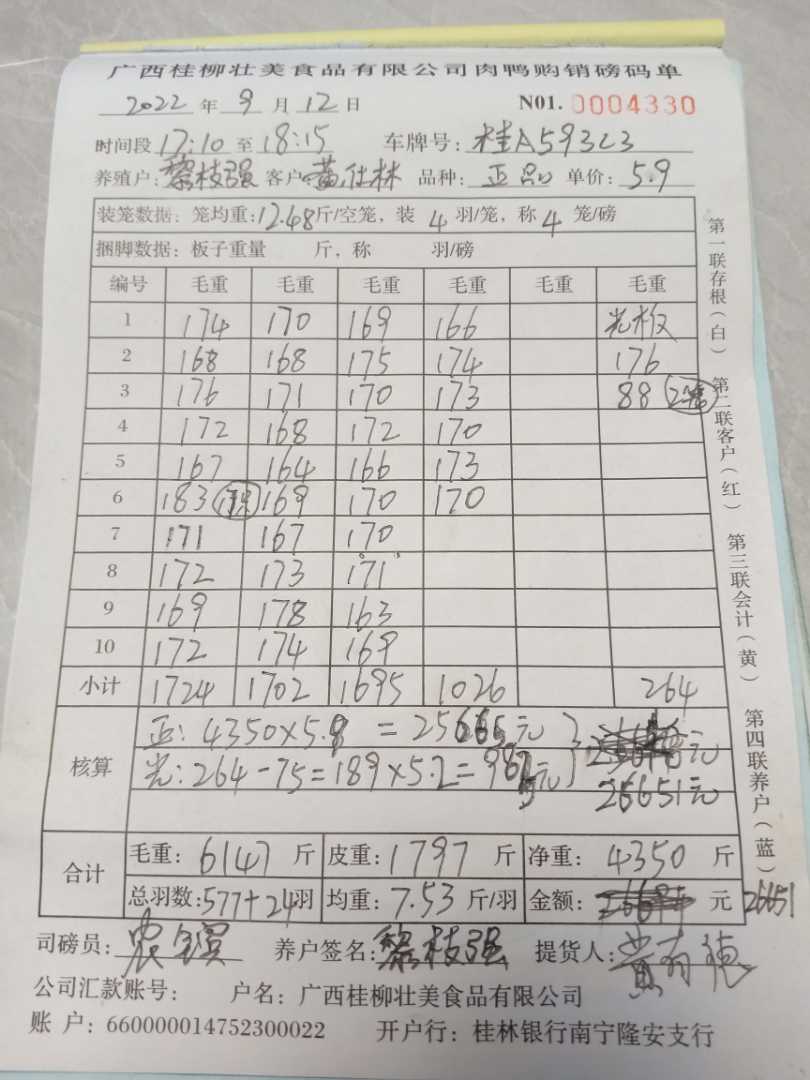 广西桂柳壮美食品有限公司肉鸭购销磅码单
2022 年 9 月 12 日 N01. 0004330
时间段 17:10 至 18:15 车牌号: 桂A593C3
养殖户: 黎枝强 客户: 黄仕林 品种: 正品 单价: 5.9
装笼数据: 笼均重: 12.48 斤/空笼, 装 4 羽/笼, 称 4 笼/磅
捆脚数据: 板子重量 斤, 称 羽/磅
编号 毛重 毛重 毛重 毛重 毛重 毛重
1 174 170 169 166 光板
2 168 168 175 174 176
3 176 171 170 173 88
4 172 168 172 170
5 167 164 166 173
6 183 169 170 170
7 171 167 170
8 172 173 171
9 169 178 163
10 172 174 169
小计 1724 1702 1695 1026 264
核算
正: 4350×5.9 = 25665元
光: 264-75=189×5.2=982元
26651元
合计
毛重: 6147 斤 皮重: 1797 斤 净重: 4350 斤
总羽数: 577+24羽 均重: 7.53 斤/羽 金额: 元 26651
司磅员: 养户签名: 黎枝强 提货人: 黄有德
公司汇款账号: 户名: 广西桂柳壮美食品有限公司
账 户: 660000014752300022 开户行: 桂林银行南宁隆安支行
第一联存根(白)
第二联客户(红)
第三联会计(黄)
第四联养户(蓝)